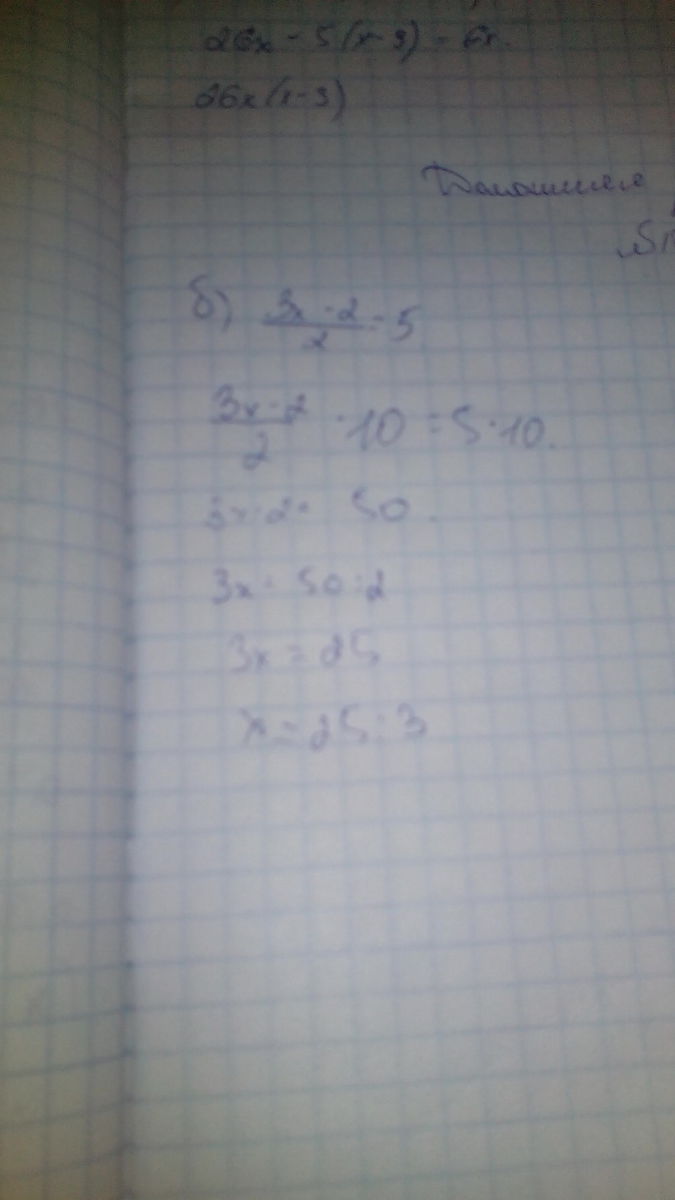 26x - 5(x-3) - 6x.
26x(x-3)
Домашнее
б) \frac{3x-2}{2}=5
\frac{3x-2}{2} · 10 = 5·10.
3x-2= 50.
3x = 50:2
3x = 25
x = 25:3